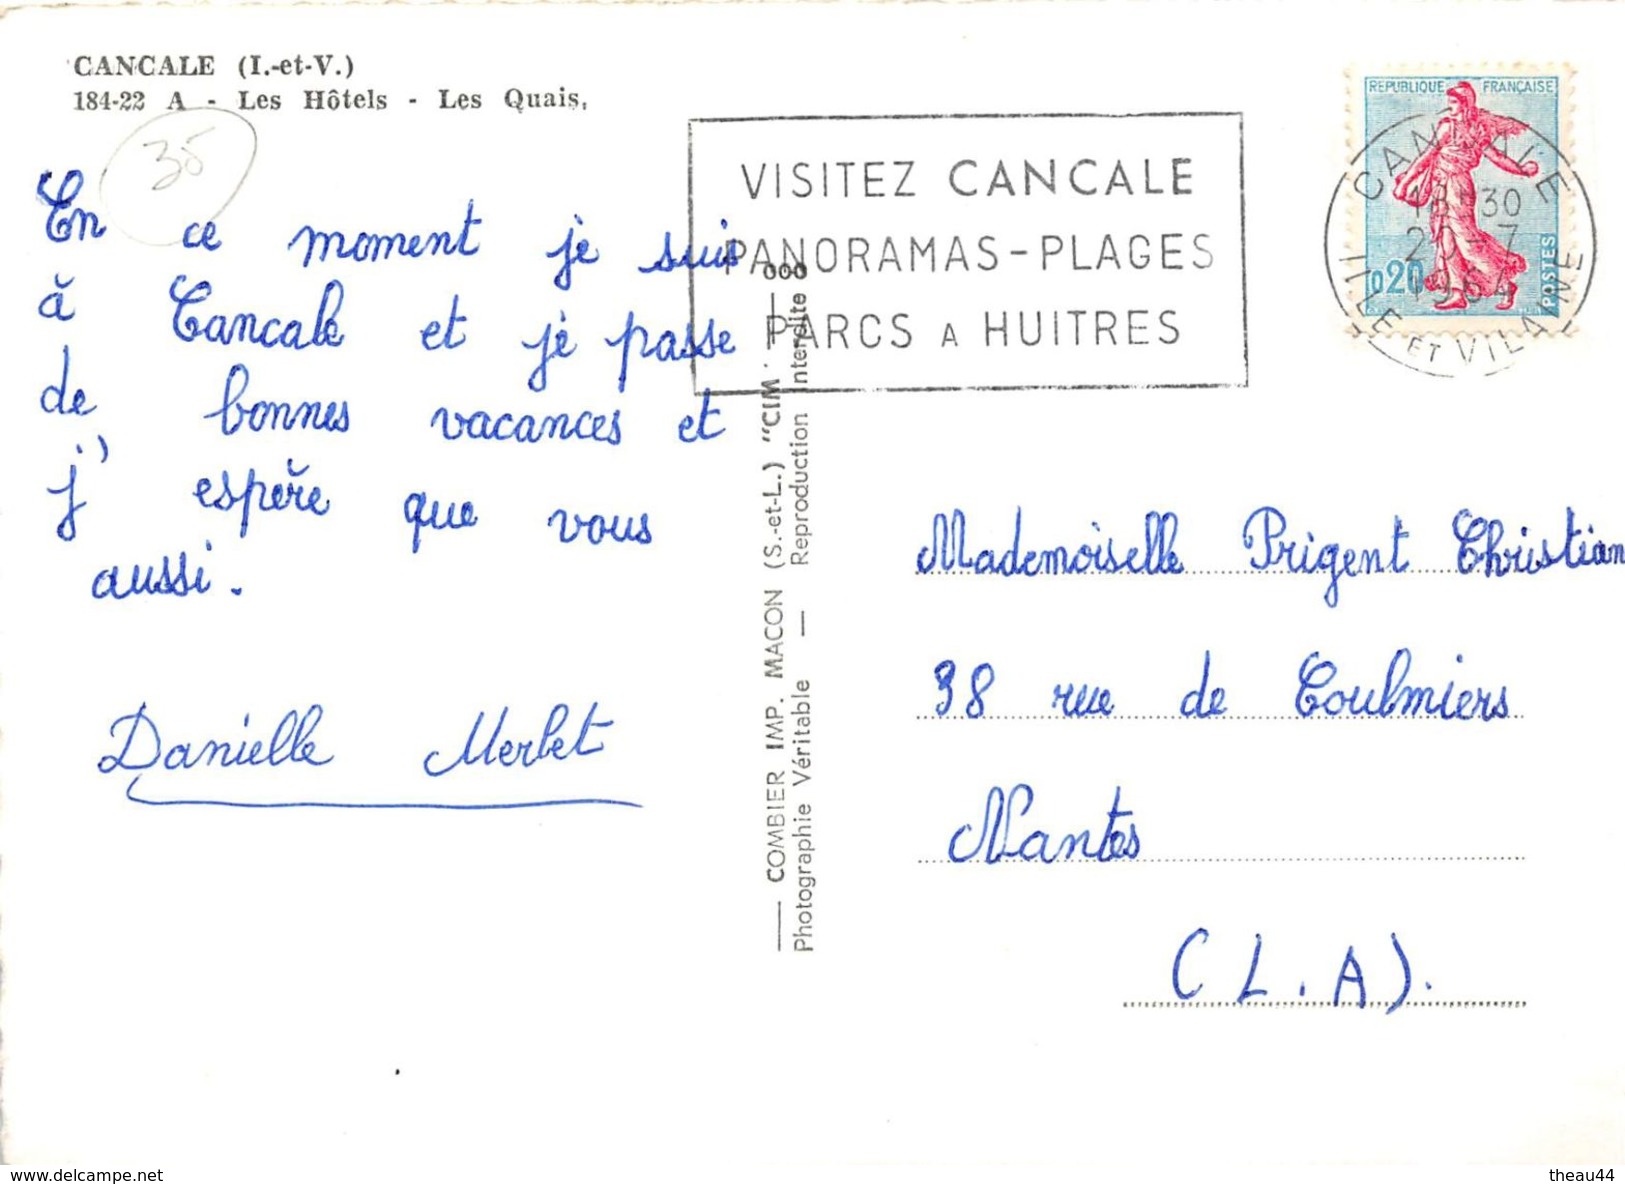 CANCALE (I.-et-V.)
184-22 A - Les Hôtels - Les Quais.
35
En ce moment je suis
à Cancale et je passe
de bonnes vacances et
j' espère que vous
aussi.
Danielle Merlet
COMBIER IMP. MACON (S.-et-L.) "CIM"
Photographie Véritable — Reproduction Interdite
VISITEZ CANCALE
PANORAMAS-PLAGES
PARCS A HUITRES
REPUBLIQUE FRANÇAISE
0,20
POSTES
CANCALE
18-30
20-7
1964
ILLE ET VILAINE
Mademoiselle Prigent Christian
38 rue de Coulmiers
Nantes
(L.A).
www.delcampe.net
theau44